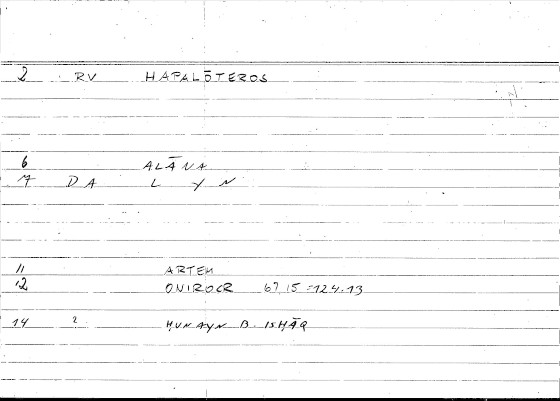 2 RV HAPALŌTEROS
6 ALĀNA
7 DA L Y N
11 ARTEM
12 ONIROCR 67,15 = 124.13
14 ? ḤUNAYN B. ISḤĀQ